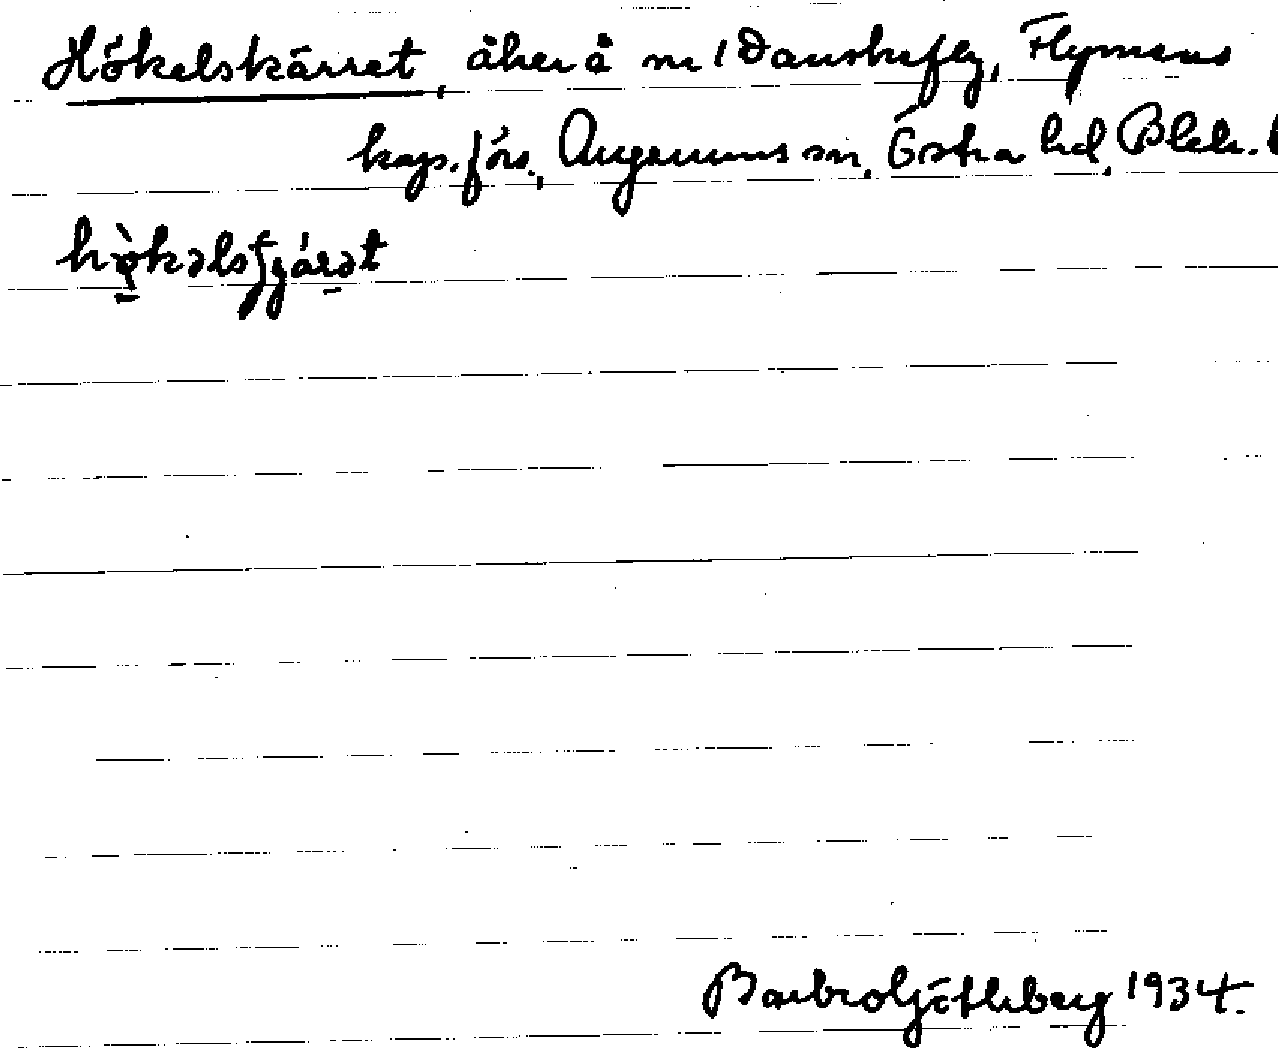 Hökelskärret, åker å nr 1 Danskefly, Flymens
kap. förs., Augerums sn, Östra hd, Blek. l
hö̀kəlsʃɟárət
Barbro Götheberg 1934.